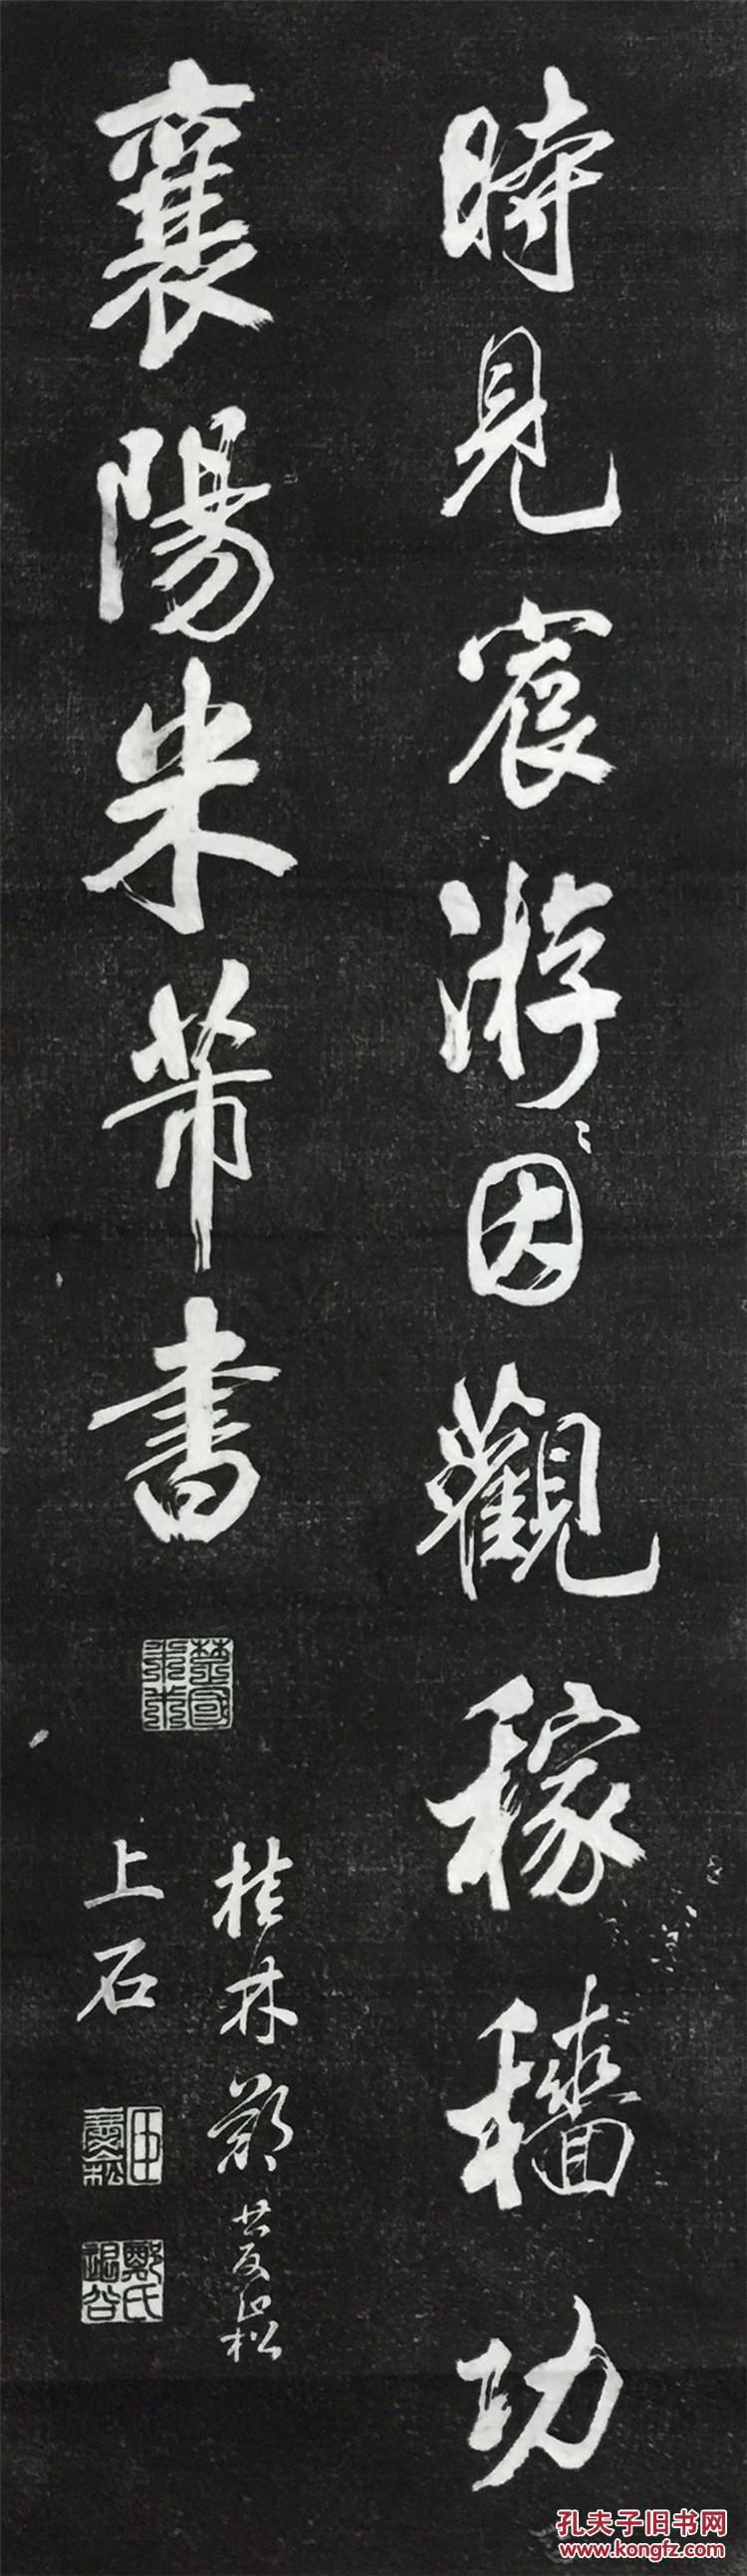 時見宸游因觀稼穡功
襄陽米芾書
楚國米芾
桂林鄭
上石
臣
鄭氏
谷
孔夫子旧书网
www.kongfz.com